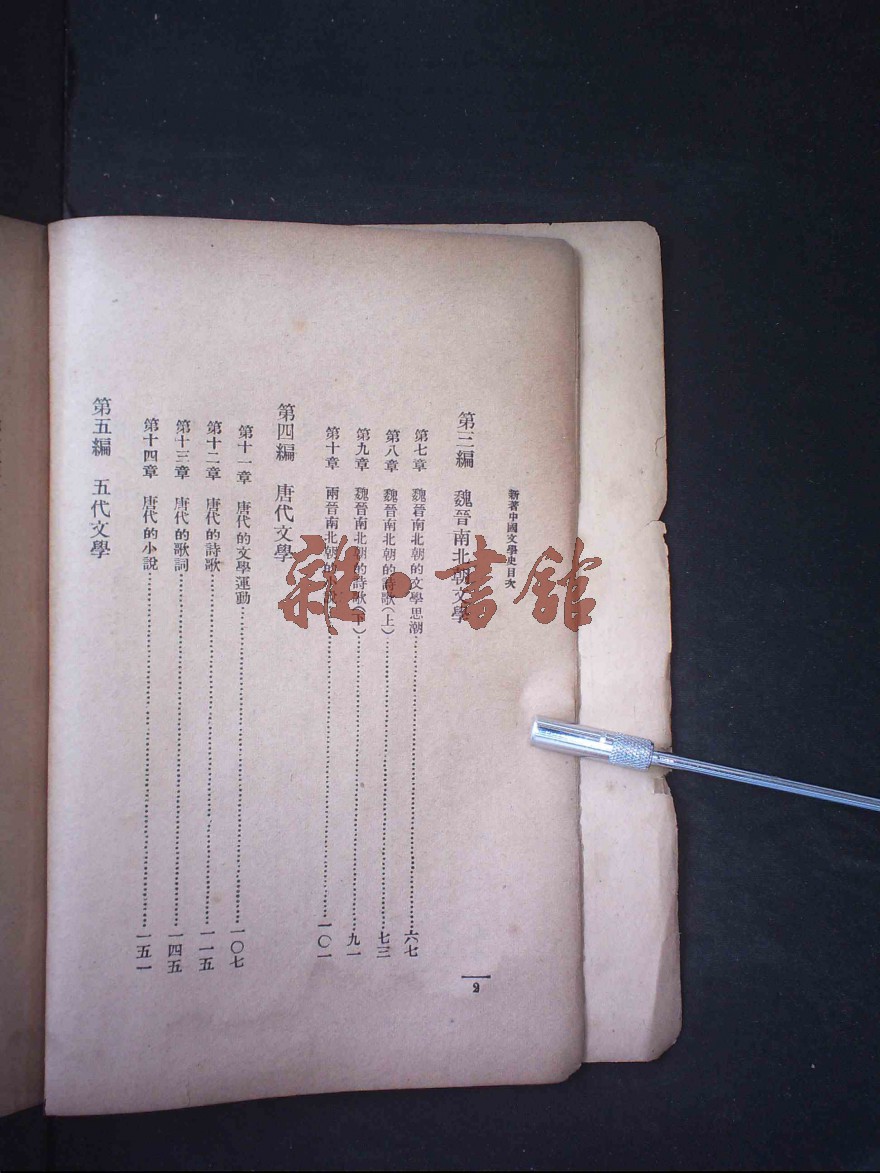 新著中國文學史目次
2
第三編 魏晉南北朝文學
第七章 魏晉南北朝的文學思潮……六七
第八章 魏晉南北朝的詩歌(上)……七三
第九章 魏晉南北朝的詩歌(下)……九一
第十章 兩晉南北朝的小說……一〇一
第四編 唐代文學
第十一章 唐代的文學運動……一〇七
第十二章 唐代的詩歌……一一五
第十三章 唐代的歌詞……一四五
第十四章 唐代的小說……一五一
第五編 五代文學
雜·書館